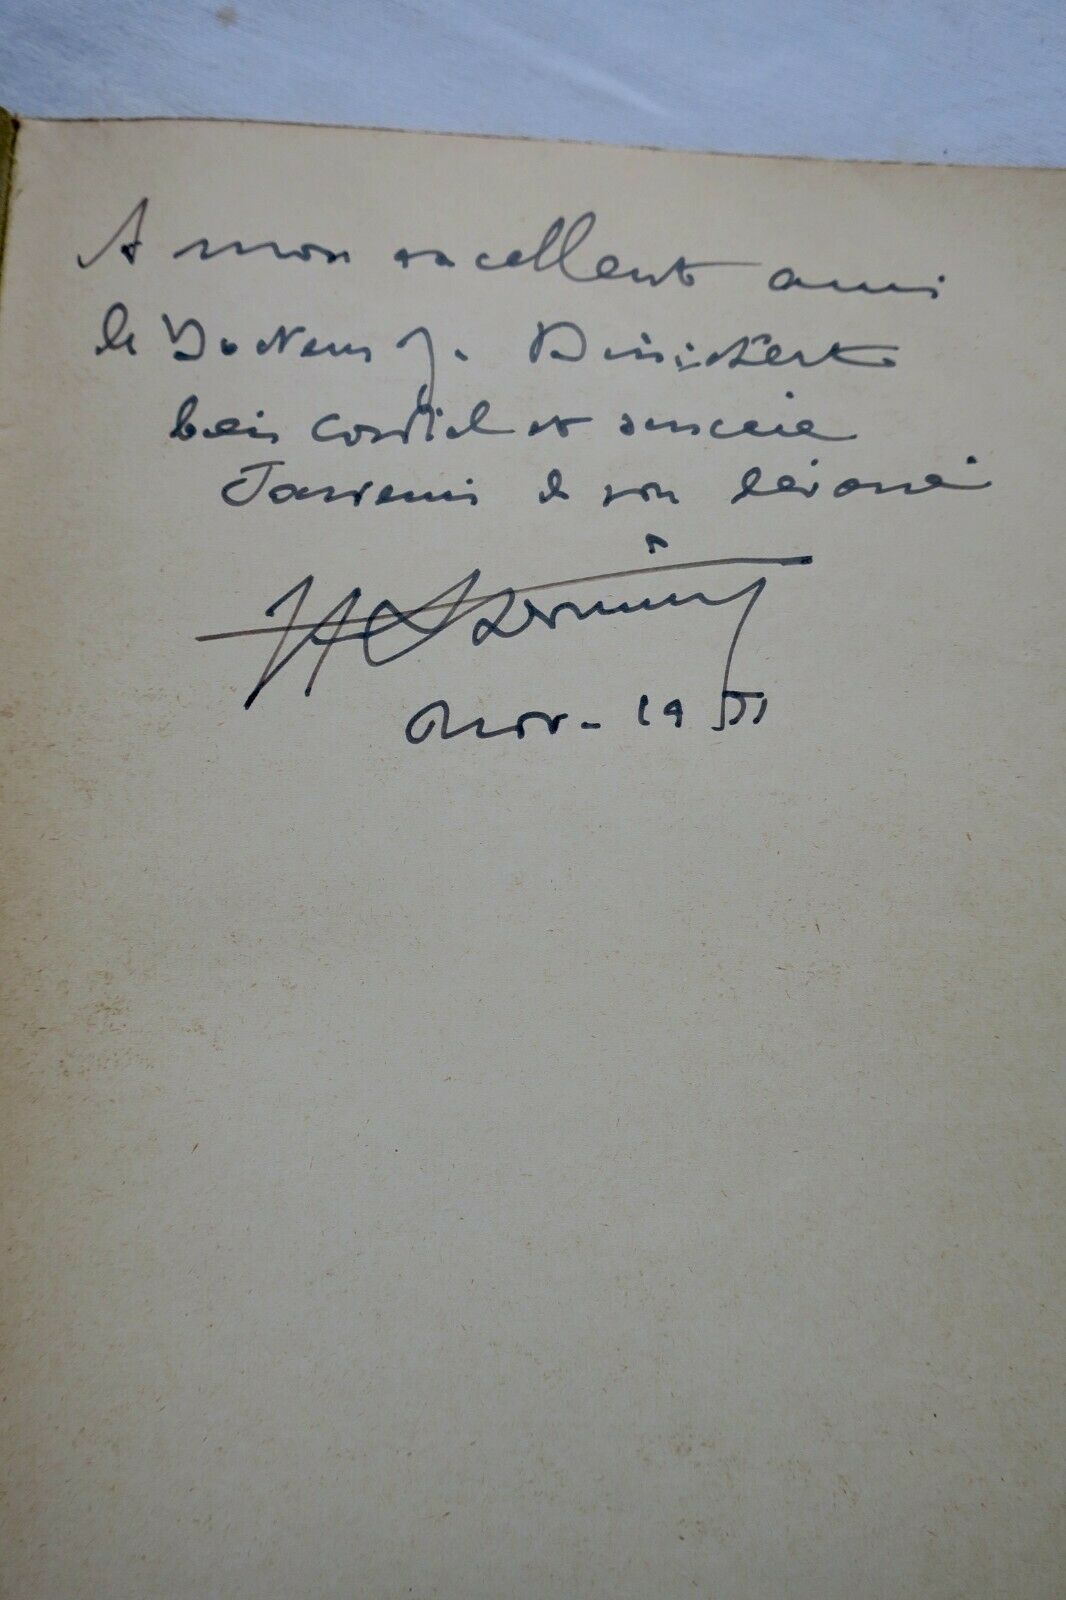 A mon excellent ami
le Docteur J.
bien cordial et sincère
Souvenir de son dévoué
Nov- 1951